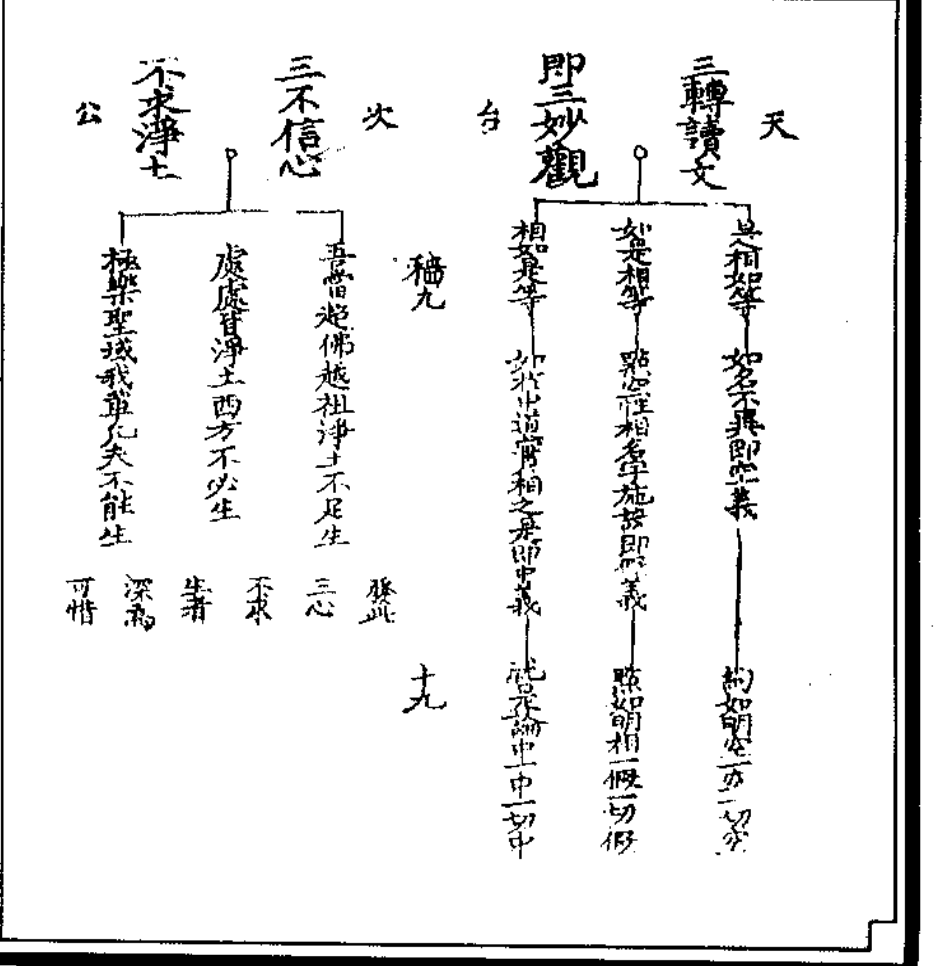 天
三轉讀文
即三妙觀
台
是相如等
如名不異即空義
約如明空一空一切空
如是相等
點空性相名字施設即假義
點如明相一假一切假
相如是等
如於中道實相之是即中義
就是論中一中一切中
次
三不信心
不求淨土
公
吾當超佛越祖淨土不足生
處處皆淨土西方不必生
極樂聖域我輩凡夫不能生
發此
三心
不求
生者
深為
可惜
十九